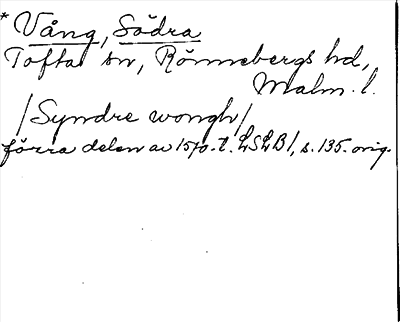 * Vång, Södra
Tofta sn, Rönnebergs hd,
Malm. l.
/Syndre wongh/
förra delen av 1570-t. LSLB1, s. 135. orig.